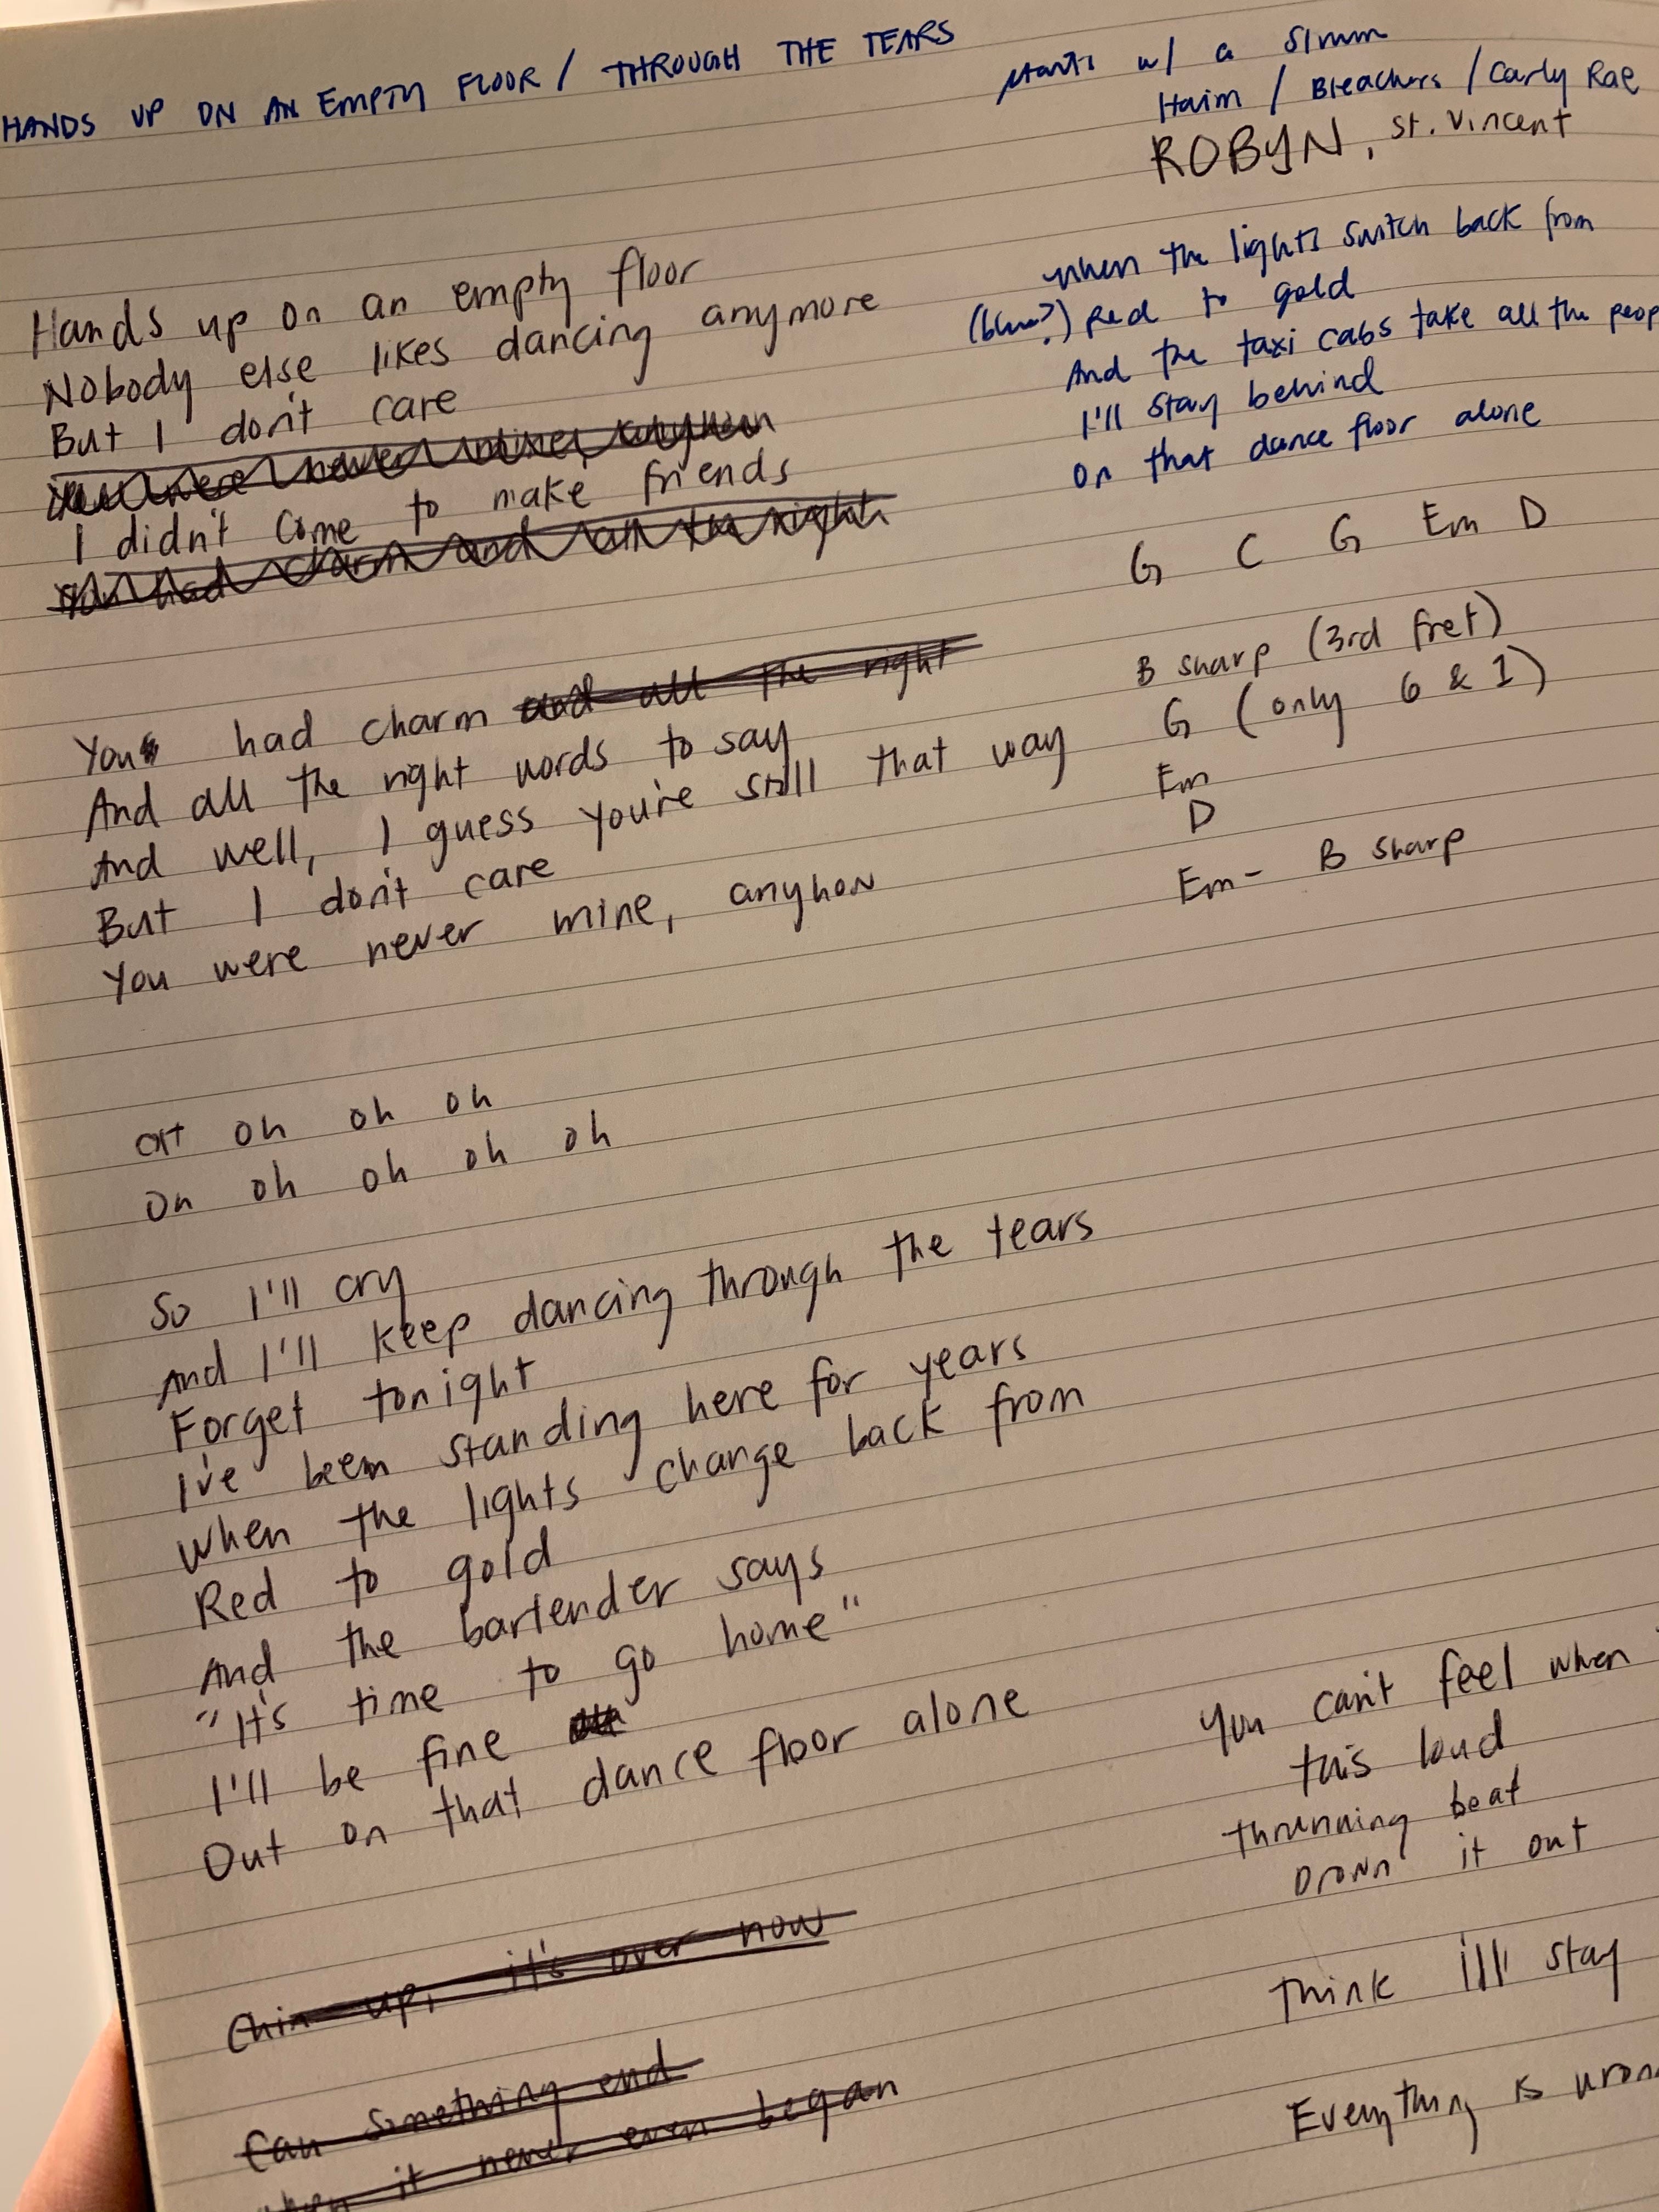 HANDS UP ON AN EMPTY FLOOR / THROUGH THE TEARS
starts w/ a strum
Haim / Bleachers / Carly Rae
ROBYN, St. Vincent
Hands up on an empty floor
Nobody else likes dancing anymore
But I don't care
You were never mine, anyhow
I didn't come to make friends
You had charm and all the right
You had charm and all the right
And all the right words to say
And well, I guess you're still that way
But I don't care
You were never mine, anyhow
oh oh oh oh
oh oh oh oh oh
So I'll cry
And I'll keep dancing through the tears
Forget tonight
I've been standing here for years
When the lights change back from
Red to gold
And the bartender says
"It's time to go home"
I'll be fine
Out on that dance floor alone
Chin up, it's over now
Can something end
when it never even began
when the lights switch back from
(blue?) Red to gold
And the taxi cabs take all the peop
I'll stay behind
on that dance floor alone
G C G Em D
B sharp (3rd fret)
G (only 6 & 1)
Em
D
Em - B sharp
You can't feel when
this loud
thrumming beat
Drown it out
Think i'll stay
Everything is wron